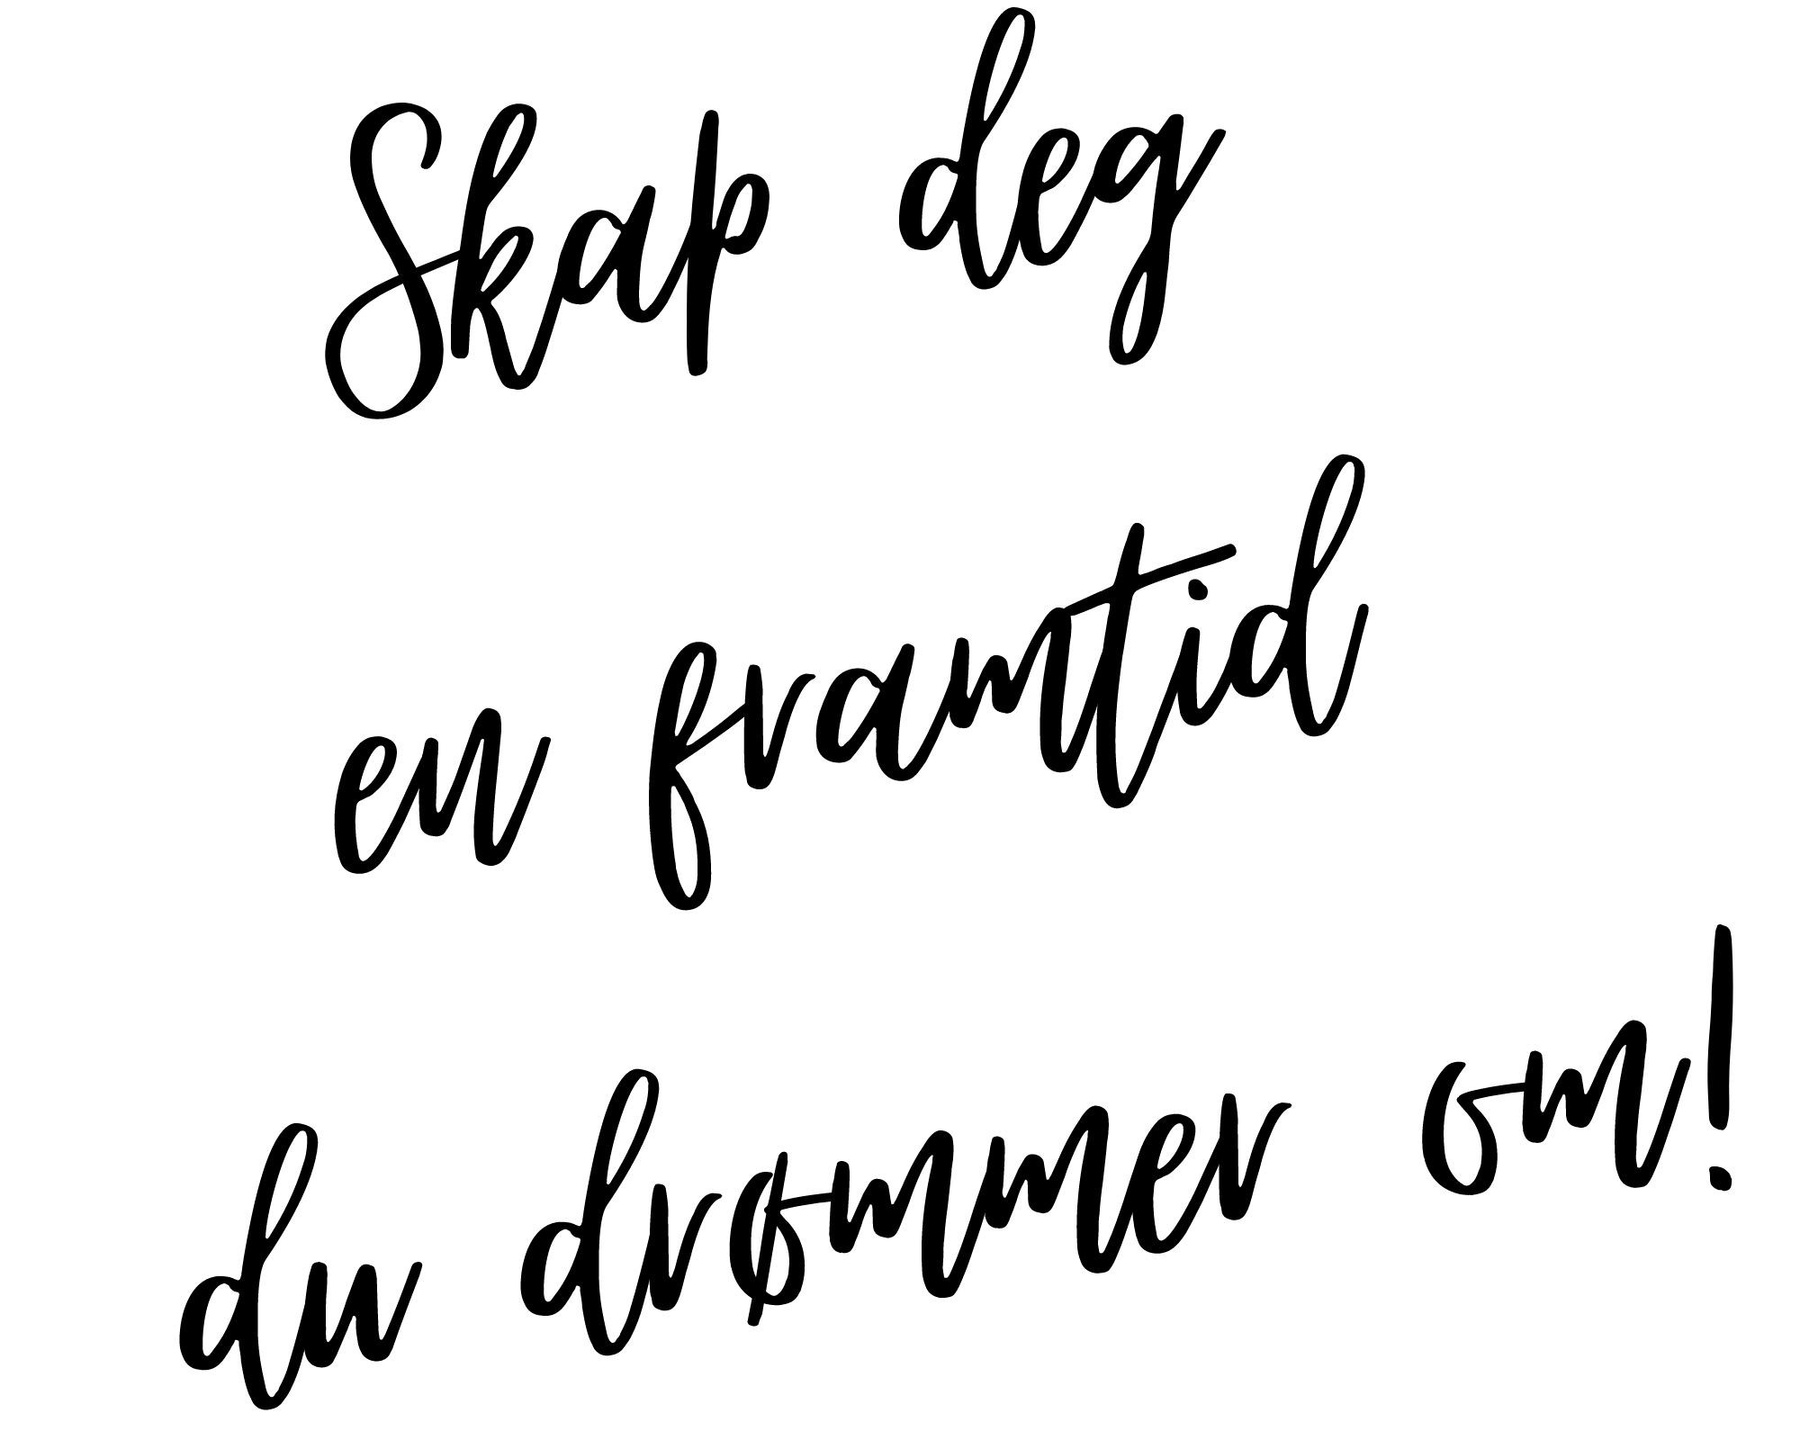 Skap deg
en framtid
du drømmer om!